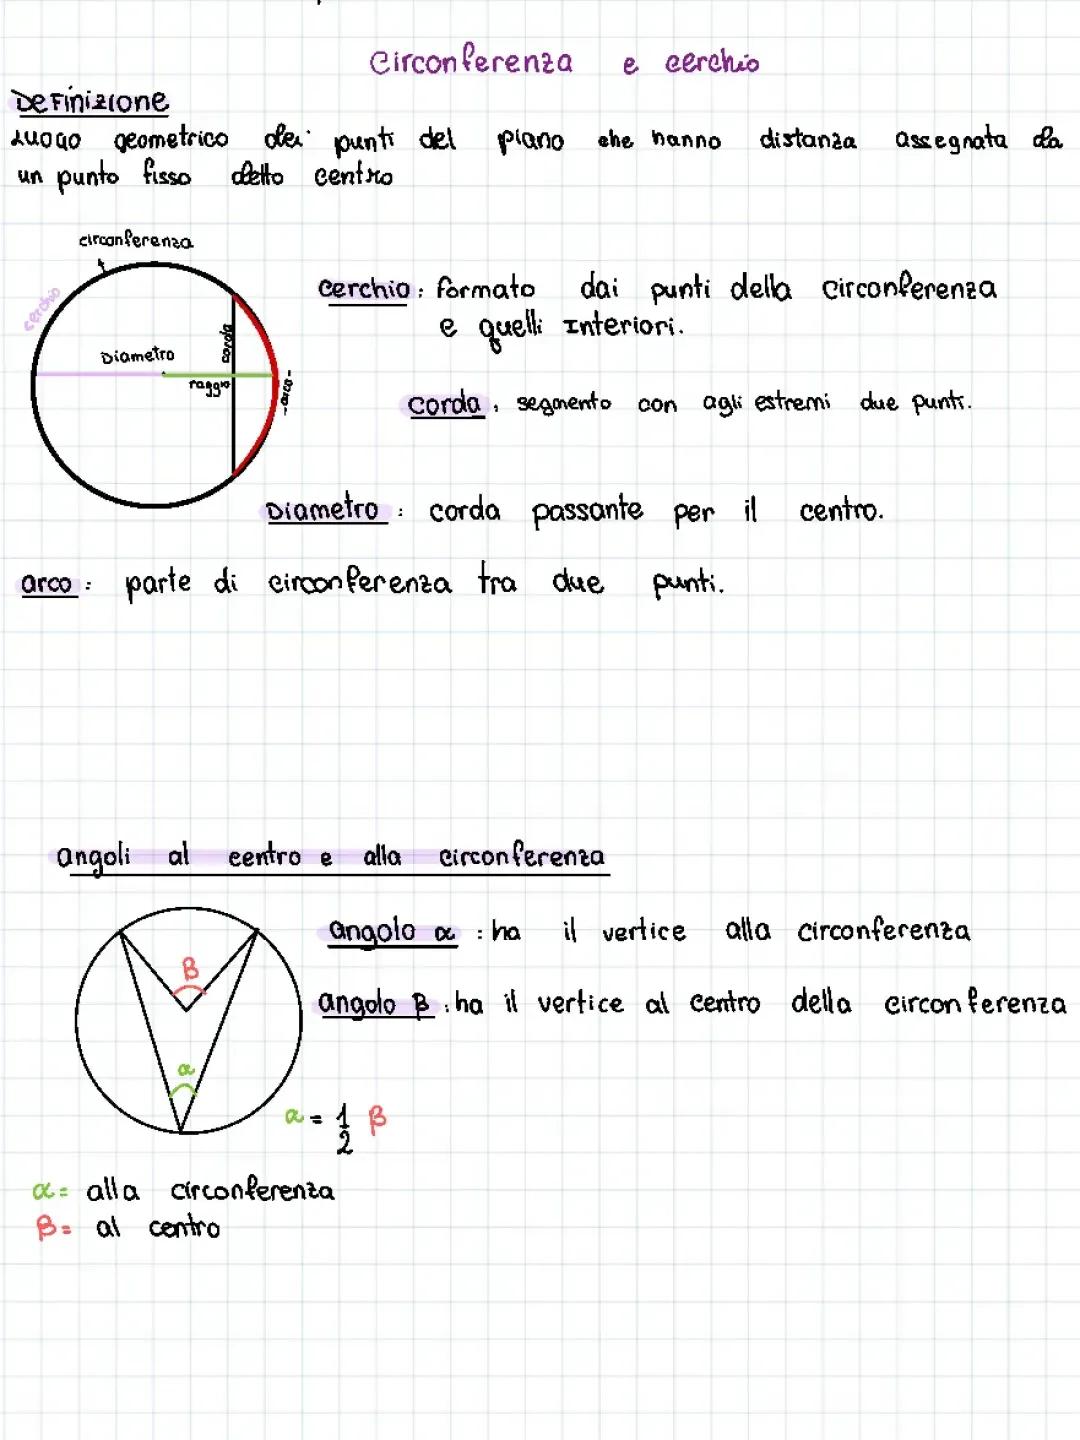 Circonferenza e cerchio
Definizione
Luogo geometrico dei punti del piano che hanno distanza assegnata da
un punto fisso detto centro
circonferenza
cerchio
Diametro
corda
raggio
-arco-
cerchio: formato dai punti della circonferenza
e quelli Interiori.
corda: segmento con agli estremi due punti.
Diametro: corda passante per il centro.
arco: parte di circonferenza tra due punti.
angoli al centro e alla circonferenza
β
α
angolo α: ha il vertice alla circonferenza
angolo β: ha il vertice al centro della circonferenza
α = 1/2 β
α= alla circonferenza
β= al centro